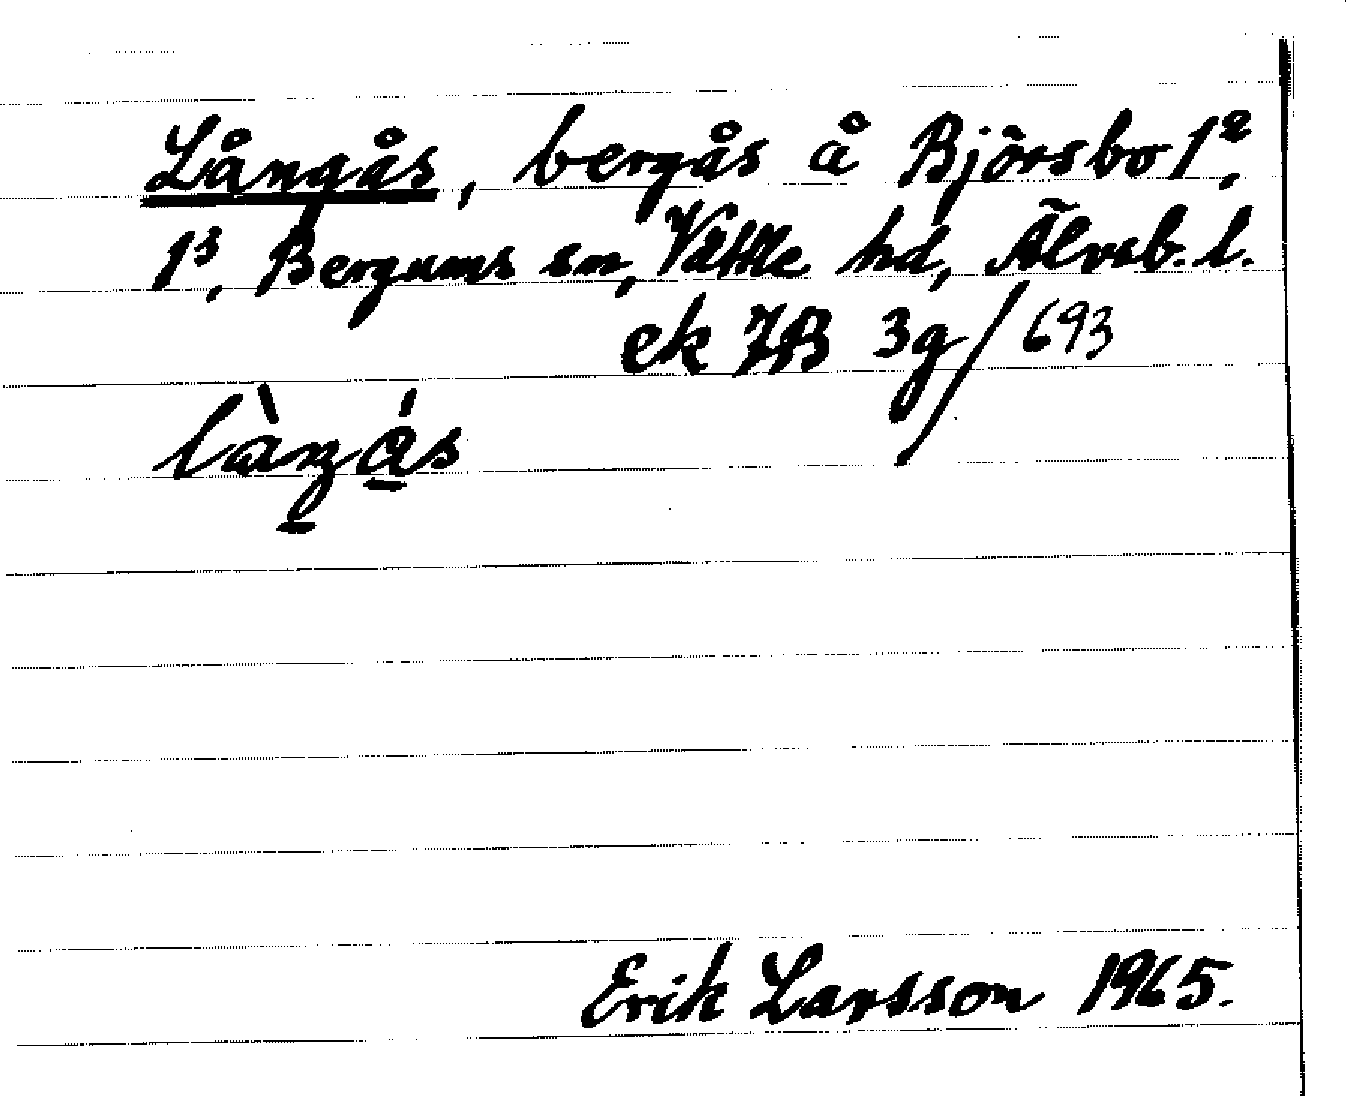 Långås, bergås å Björsbo 1²,
1³, Bergums sn, Vättle hd, Älvsb. l.
ek 7B 3g/693
làŋás
Erik Larsson 1965.